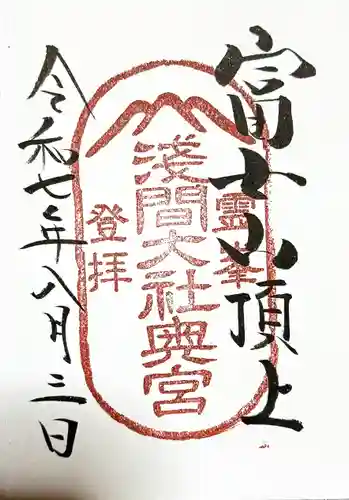 富士山頂上
霊峯
淺間大社奥宮
登拝
令和七年八月三日